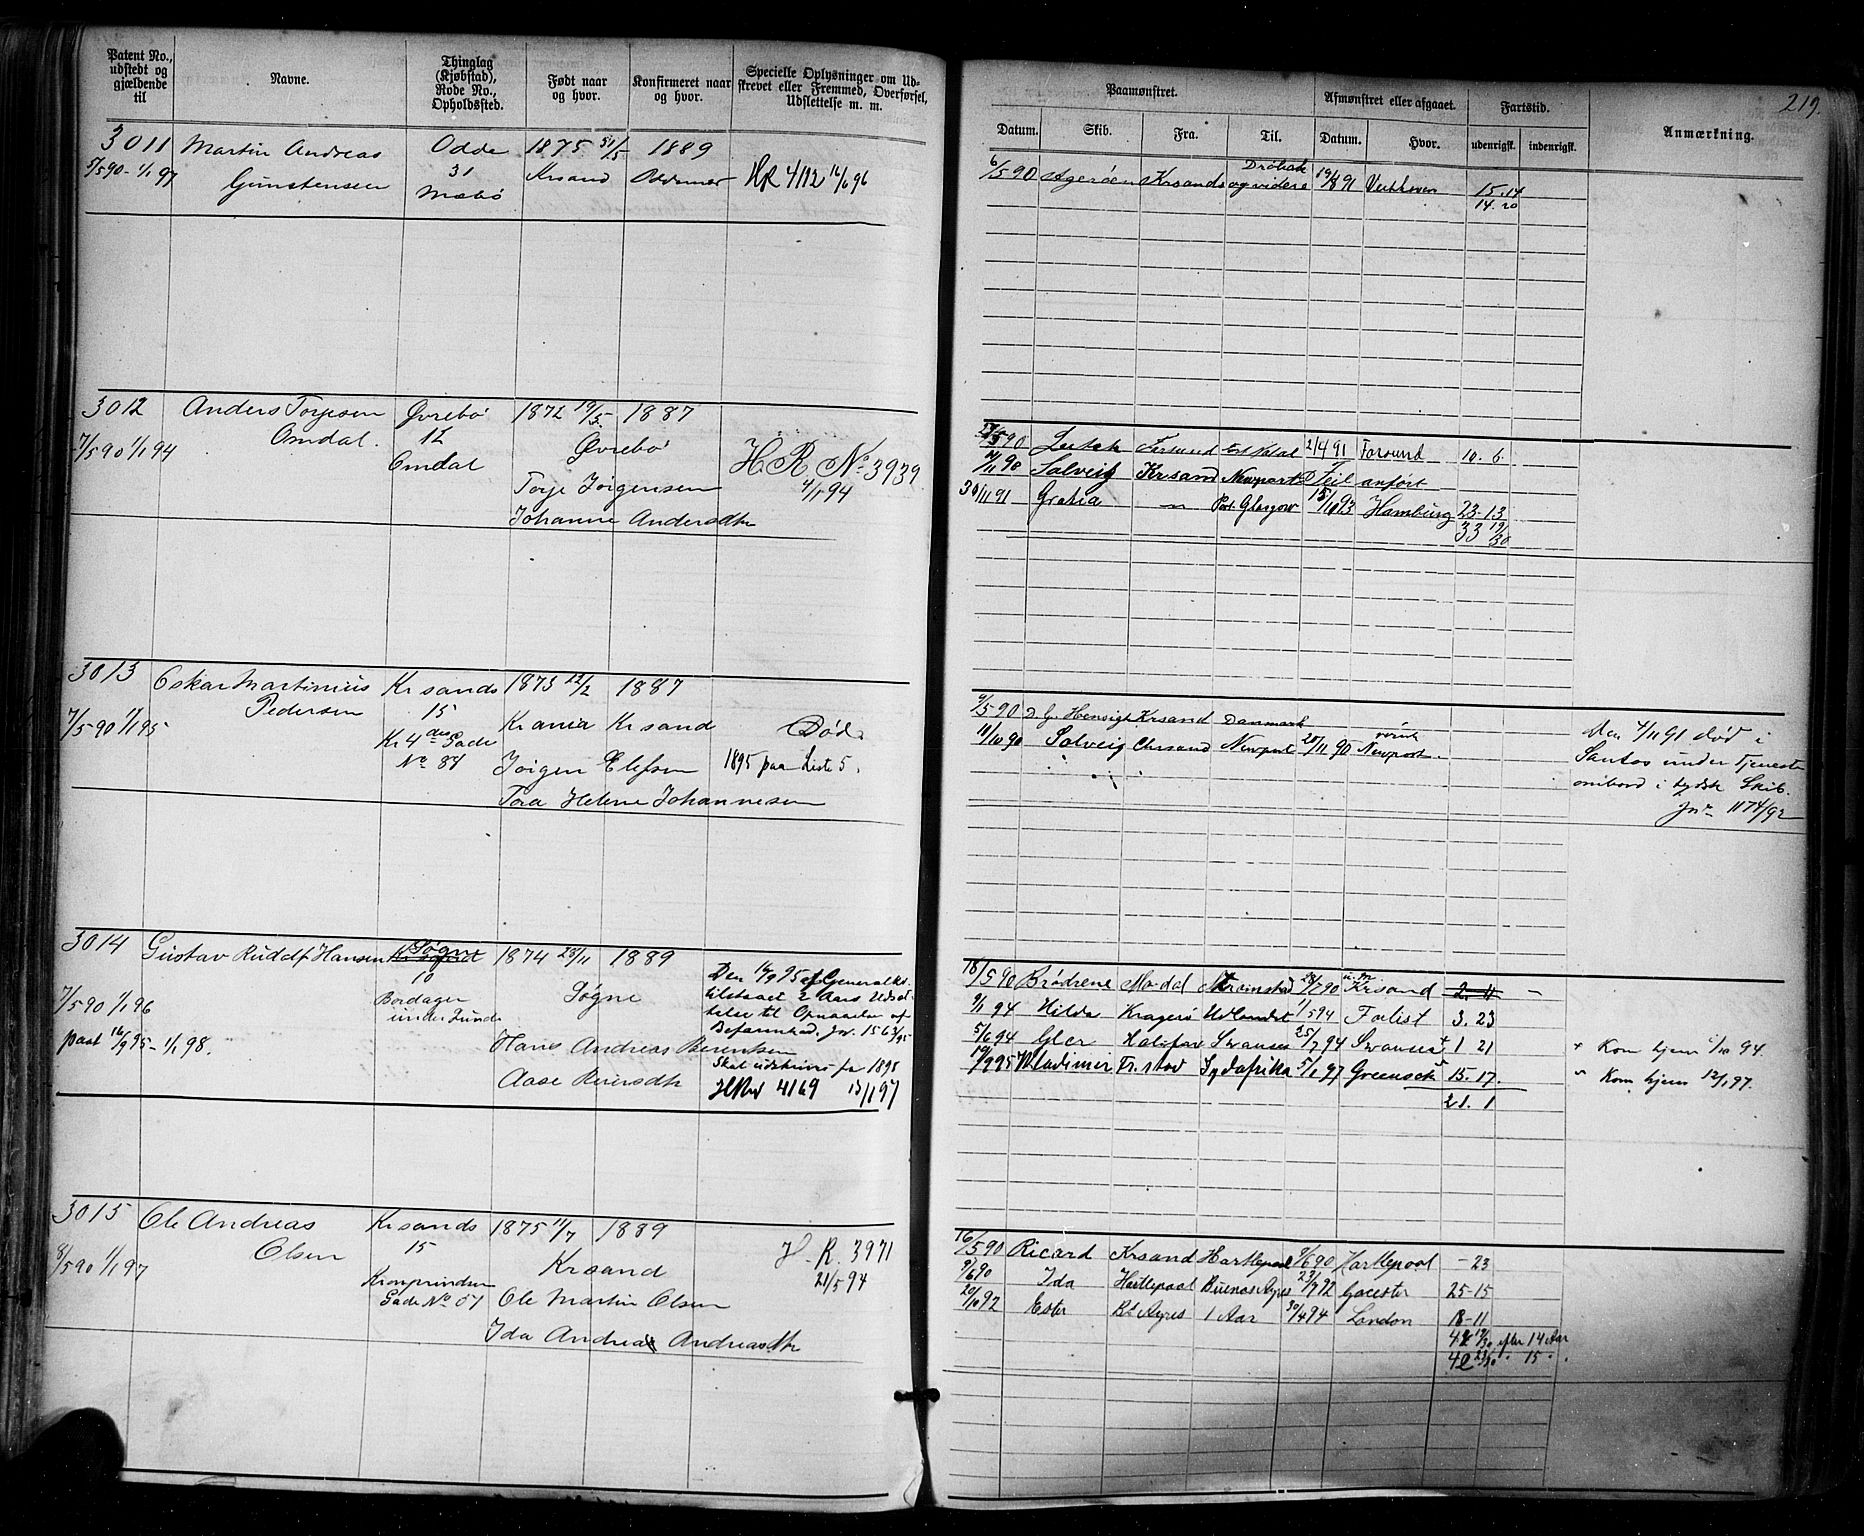 Patent No., udstedt og gjældende til
Navne.
Thinglag (Kjøbstad), Rode No., Opholdssted.
Født naar og hvor.
Konfirmeret naar og hvor.
Specielle Oplysninger om Udskrevet eller Fremmed, Overførsel, Udslettelse m. m.
3011 Martin Andreas Odde 1875 31/5 1889
7/5 90 - 1/1 97 Gunstensen 31 Krsand HR 4112 16/6 96
Mæbø
3012 Anders Torjesen Øvrebø 1872 19/5 1887
7/5 90 1/1 94 Omdal. 12 Øvrebø HR No 3939
Omdal 4/1 94
Torje Jörgensen
Johanne Andersdtr
3013 Oskar Martinius Krsands 1873 22/2 1887
7/5 90 1/1 95 Pedersen 15 Krania Krsand Død.
Kr 4de Gade
No 84 Jörgen Elefsen 1895 paa Liste 5.
Tora Helene Johannesen
3014 Gustav Rudolf Hansen Søgne 1874 28/11 1889
10
7/5 90 1/1 96 Søgne Den 14/9 95 af Generalkr.
tilstaaet 2 Aars Udsæt-
paat 16/9 95 - 1/1 98. telse til Opnaaelse af
Befarenhed. Jr. 1563/95
Hans Andreas Berentsen
Skal udskrives fra 1898
Aase Reiersdtr
HR 4169 13/1 97
3015 Ole Andreas Krsands 1875 11/7 1889
8/5 90 1/1 97 Olsen 15 Krsand H. R. 3971
21/5 94
Kronprindsen
Gade No 51 Ole Martin Olsen
Ida Andrea Andreasdtr
219.
Paamønstret.
Afmønstret eller afgaaet.
Fartstid.
Anmærkning.
Datum. Skib. Fra. Til. Datum. Hvor. udenrigsk. indenrigsk.
Drøbak
6/5 90 Agerøen Krsands og videre 19/8 91 15.14
14.20
27/5 90 Farsund 2/4 91 Farsund 10.6
7/11 90 Solveig Krsand Newport Feil anført
30/11 91 Gratia - " - Port Glasgow 15/10 93 Hamburg 23-13
33 19/30
9/5 90 Krsand Danmark
10/10 90 Solveig Chrsand Newport 25/11 90 Newport.
Den 4/11 91 død i
Santos under Tjeneste
ombord i tydsk Skib.
Jnr 1174/92
18/5 90 Brødrene Mandal Strømstad 28/7 90 Krsand 2. 11
9/1 94 Hilda Kragerø Udlandet 1/5 94 Forlist 3. 23
5/6 94 Gler Halifax Swansea 25/7 94 Swansea + 1 21
19/9 95 Wladimir Fr.stad Sydafrika 5/1 97 15. 17.
21. 1
+ Kom hjem 2/10 94.
" Kom hjem 12/1 97.
16/5 90 Ricard Krsand Hartlepool 9/6 90 Hartlepool - 23
9/6 90 Ida Hartlepool Buenos Ayres 23/7 92 25-15
20/10 92 Ester Bs Ayres 1 Aar 30/4 94 London 18-11
42 19/30 efter 14 Aar
42 23/30 " 15 " .